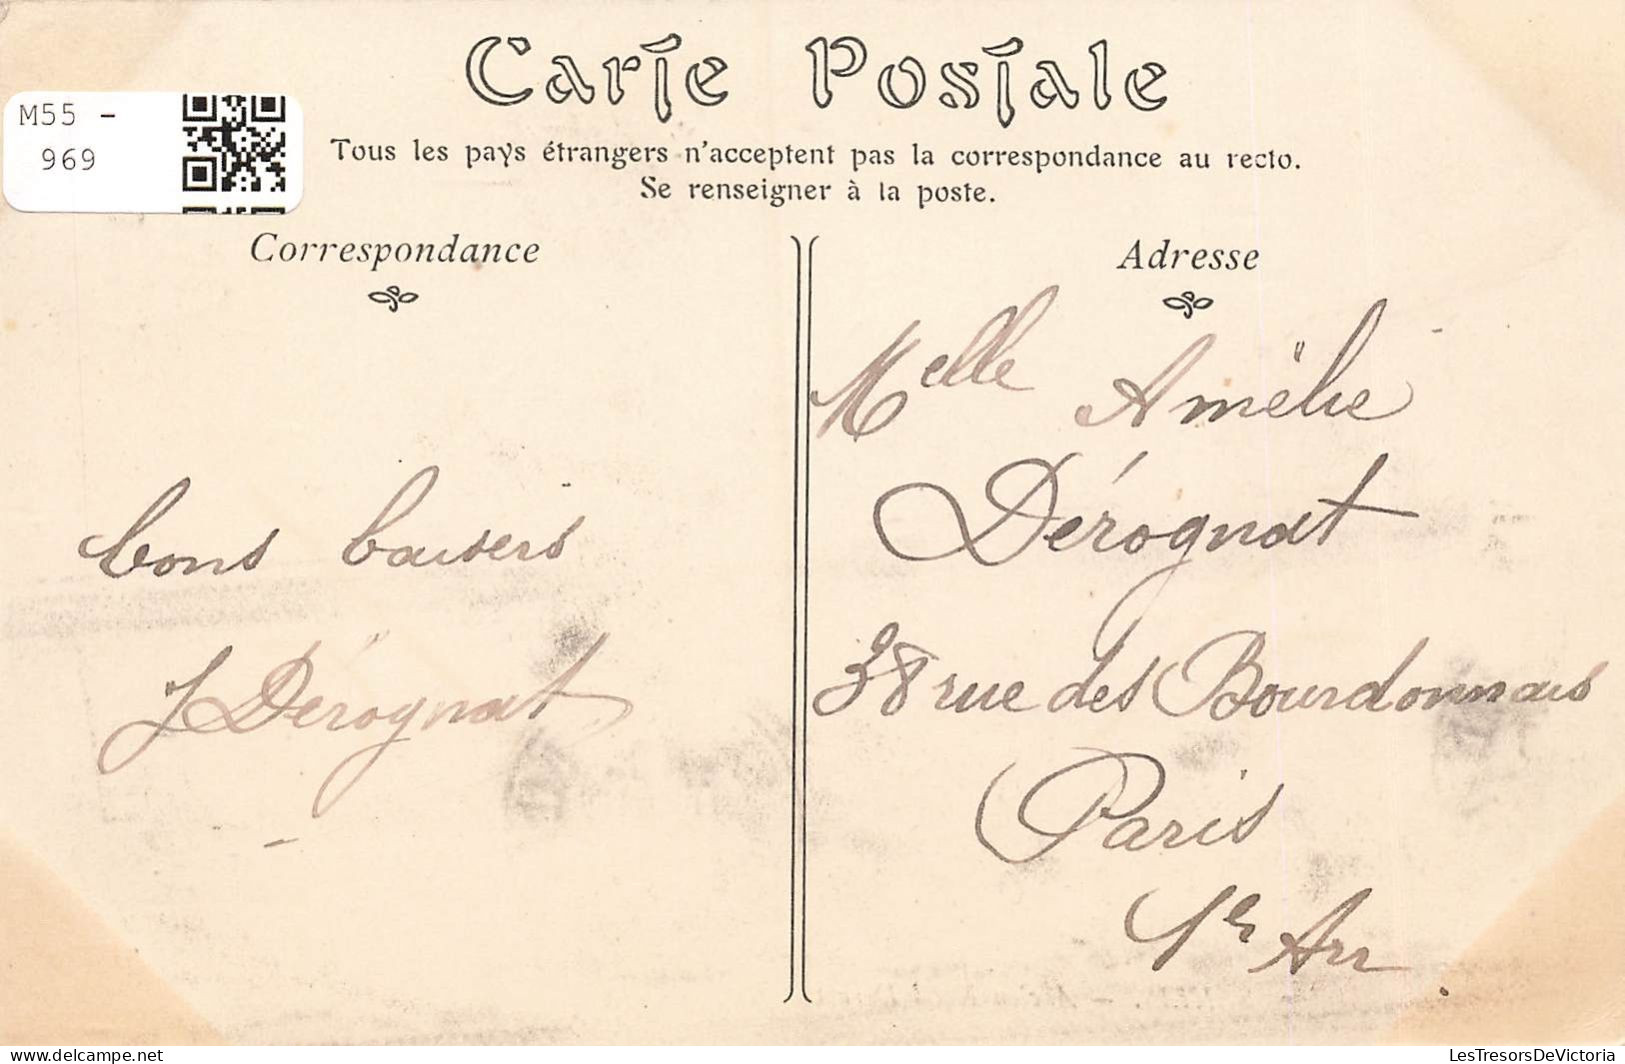 Carte Postale
M55 -
969
Tous les pays étrangers n'acceptent pas la correspondance au recto.
Se renseigner à la poste.
Correspondance
bons baisers
J Dérognat
Adresse
Melle Amélie
Dérognat
38 rue des Bourdonnais
Paris
1er Arr
delcampe.net
LesTresorsDeVictoria